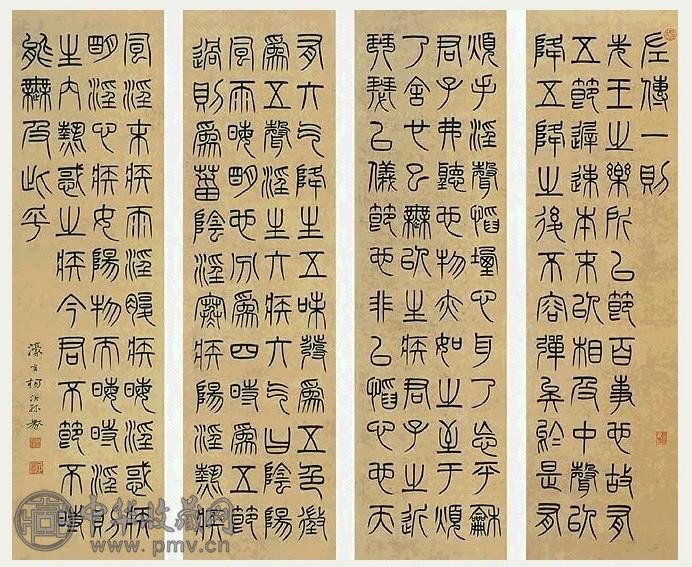 左傳一則
先王之樂所以節百事也故有
五節遲速本末以相及中聲以
降五降之後不容彈矣於是有
煩手淫聲慆堙心耳乃忘平龢
君子弗聽也物亦如之至于煩
乃舍也已無以生疾君子之近
琴瑟以儀節也非以慆心也天
有六气降生五味發為五色徵
為五聲淫生六疾六气曰陰陽
風雨晦明也分為四時為五節
過則為菑陰淫寒疾陽淫熱疾
風淫末疾雨淫腹疾晦淫惑疾
明淫心疾女陽物而晦時淫則
生內熱惑之疾今君不節不時
能無及此乎
濠叟楊沂孫書
中华收藏网
www.pmv.cn